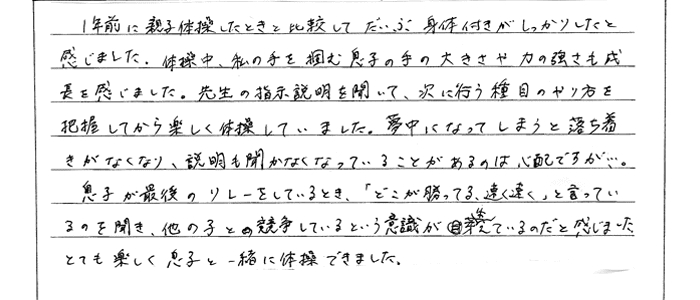 1年前に親子体操したときと比較してだいぶ身体付きがしっかりしたと
感じました。体操中、私の手を掴む息子の手の大きさや力の強さも成
長を感じました。先生の指示説明を聞いて、次に行う種目のやり方を
把握してから楽しく体操していました。夢中になってしまうと落ち着
きがなくなり、説明も聞かなくなっていることがあるのは心配ですが…。
息子が最後のリレーをしているとき、「どこが勝ってる、速く速く」と言ってい
るのを聞き、他の子との競争しているという意識が芽生えているのだと感じました
とても楽しく息子と一緒に体操できました。